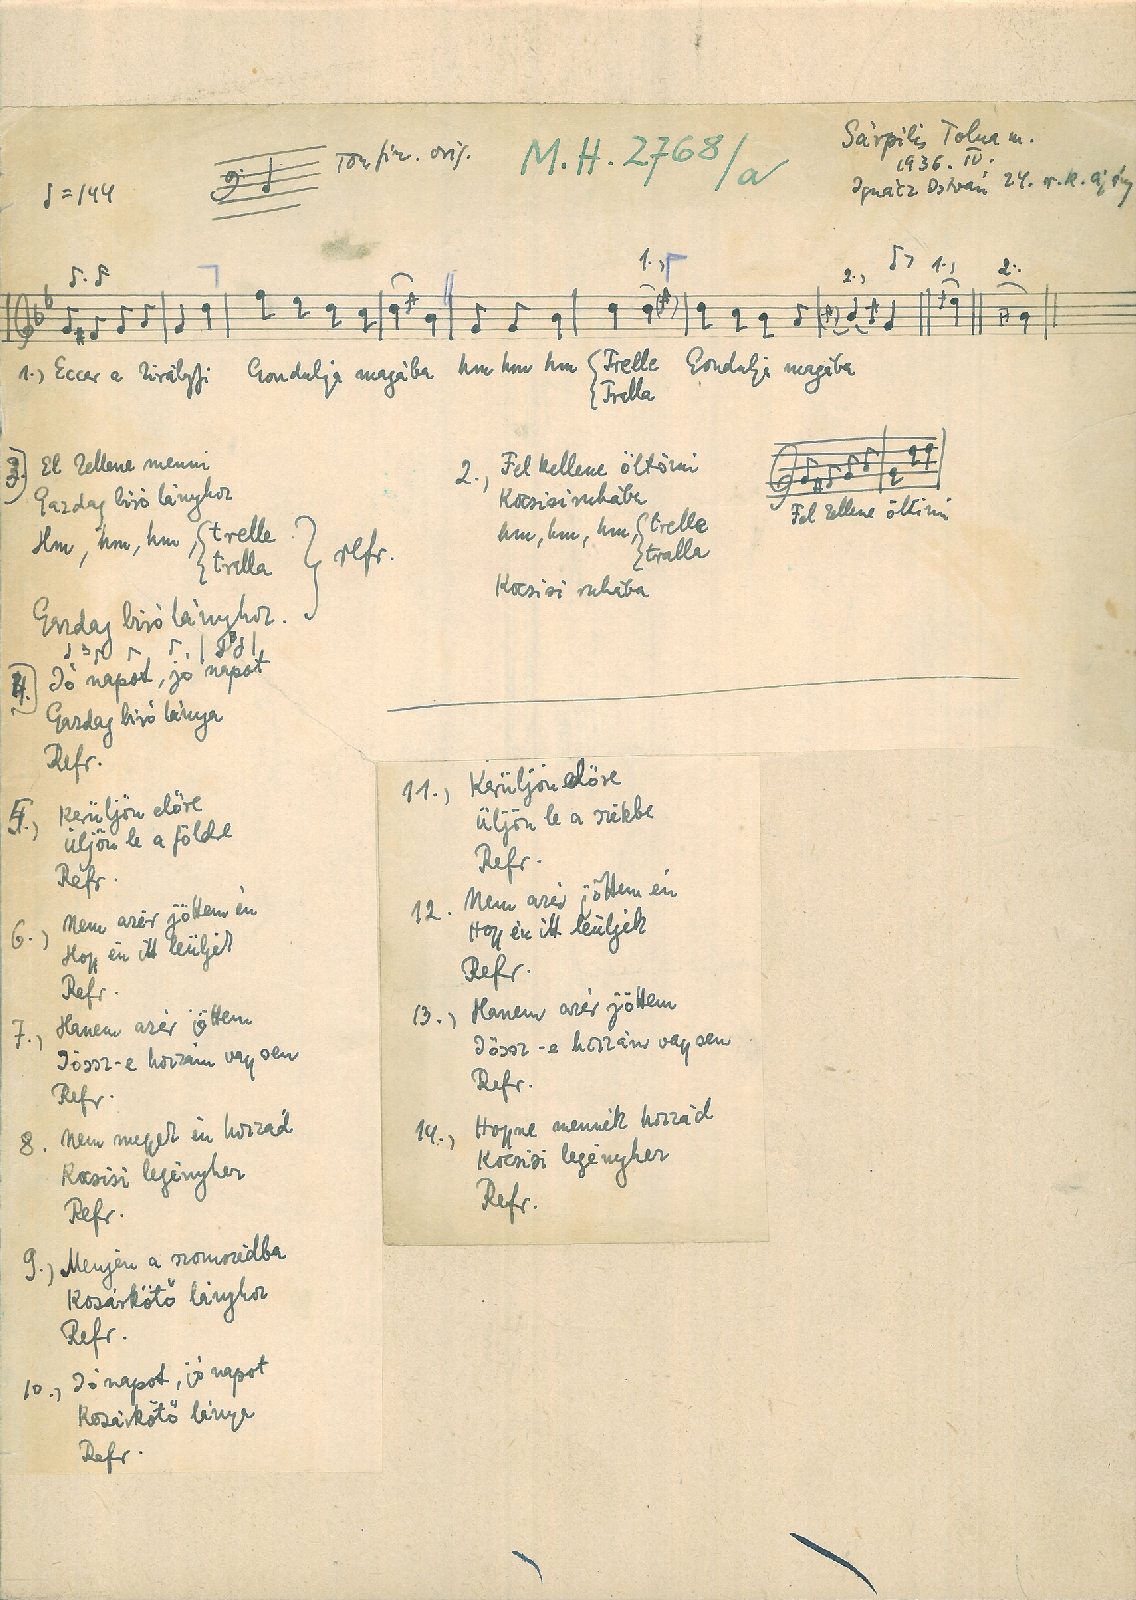 ♩=144
Ton fin. orig.
M.H. 2768/a
Sárpilis Tolna m.
1936. IV.
Ignácz István 24.
1., 2., 1., 2.
1., Eccer a királyfi Gondulja magába hm hm hm {Trelle Gondulja magába
{Trella
3. El kellene menni
Gazdag biró lányhoz
Hm, hm, hm, {trelle
{trella
Gazdag biró lányhoz.
} refr.
2., Fel kellene öltözni
Kocsisiruhába
hm, hm, hm, {trelle
{tralla
Kocsisi ruhába
Fel kellene öltözni
4. Jó napot, jó napot
Gazdag biró lánya
Refr.
5., Kerüljön előre
Üljön le a földre
Refr.
6., Nem azér jöttem én
Hogy én itt leüljek
Refr.
7., Hanem azér jöttem
Jössz-e hozzám vagy sem
Refr.
8. Nem megyek én hozzád
Kocsisi legényhez
Refr.
9., Menjen a szomszédba
Kosárkötő lányhoz
Refr.
10., Jó napot, jó napot
Kosárkötő lánya
Refr.
11., Kerüljön előre
Üljön le a székbe
Refr.
12. Nem azér jöttem én
Hogy én itt leüljek
Refr.
13., Hanem azér jöttem
Jössz-e hozzám vagy sem
Refr.
14., Hogyne mennék hozzád
Kocsisi legényhez
Refr.